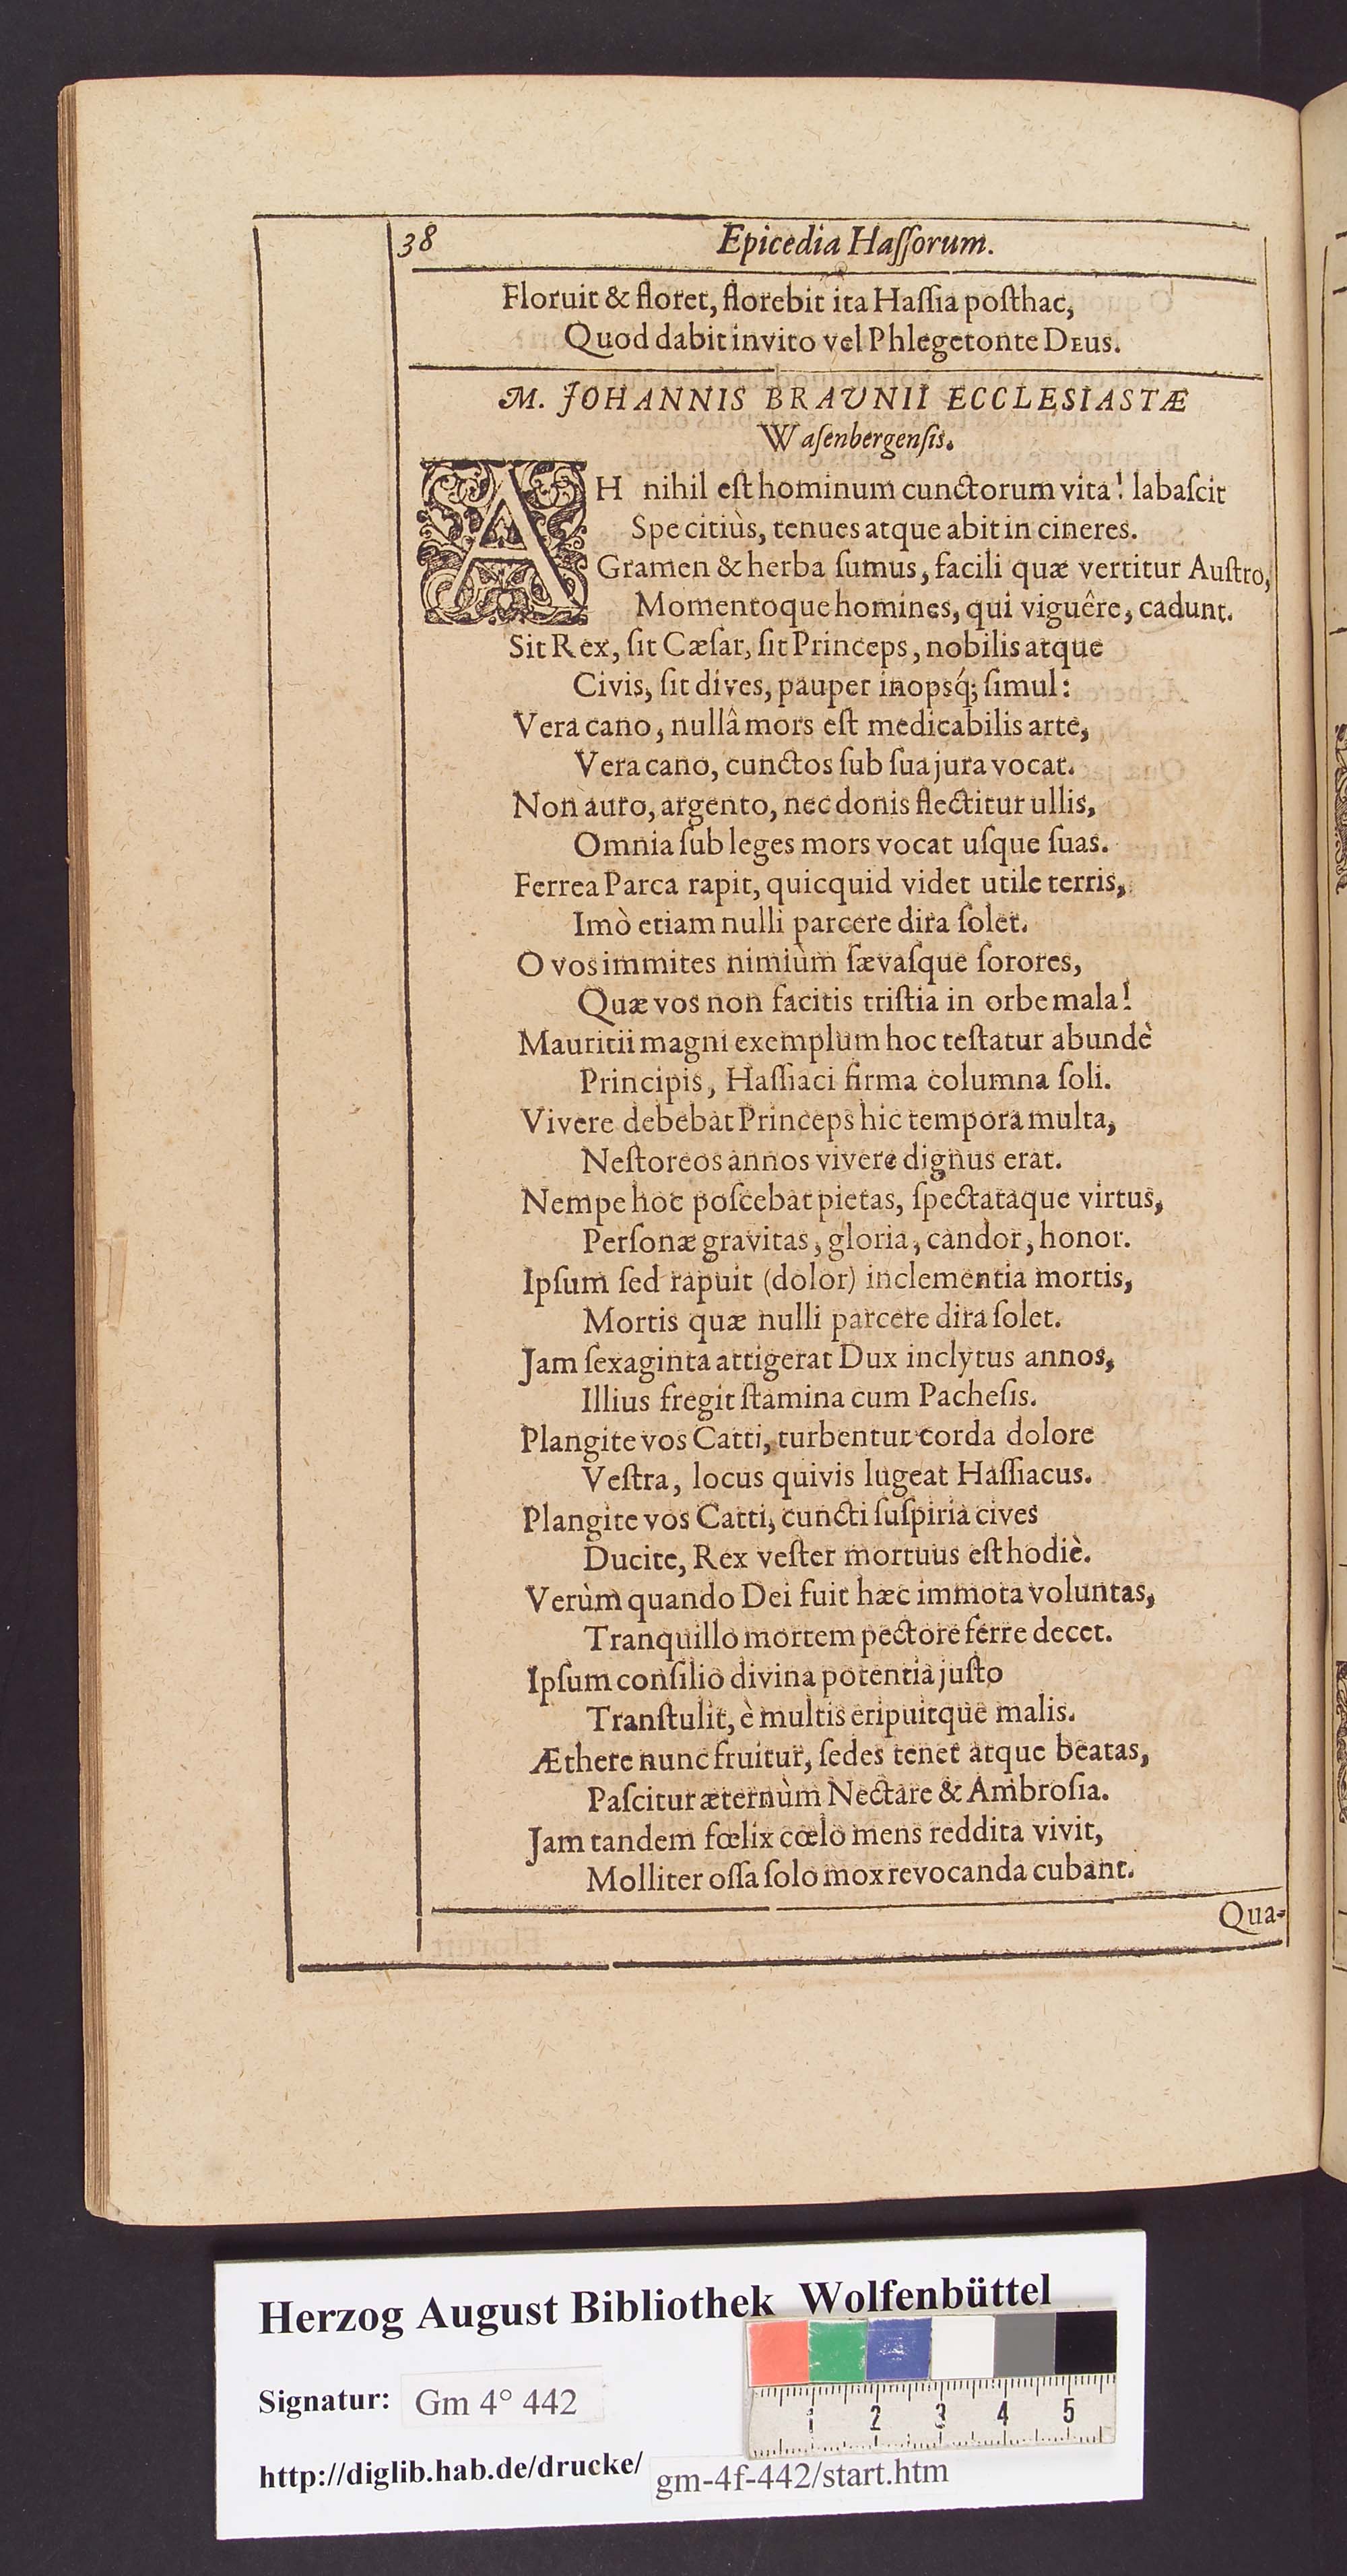 38 Epicedia Haſſorum.
Floruit & floret, florebit ita Haſſia poſthac,
Quod dabit invito vel Phlegetonte DEus.
M. JOHANNIS BRAUNII ECCLESIASTÆ
Waſenbergenſis.
AH nihil eſt hominum cunctorum vita! labaſcit
Spe citiùs, tenues atque abit in cineres.
Gramen & herba ſumus, facili quæ vertitur Auſtro,
Momentoque homines, qui viguêre, cadunt.
Sit Rex, ſit Cæſar, ſit Princeps, nobilis atque
Civis, ſit dives, pauper inopsq́; ſimul:
Vera cano, nullâ mors eſt medicabilis arte,
Vera cano, cunctos ſub ſua jura vocat.
Non auro, argento, nec donis flectitur ullis,
Omnia ſub leges mors vocat uſque ſuas.
Ferrea Parca rapit, quicquid videt utile terris,
Imò etiam nulli parcere dira ſolet.
O vos immites nimiùm ſævaſque ſorores,
Quæ vos non facitis triſtia in orbe mala!
Mauritii magni exemplum hoc teſtatur abundè
Principis, Haſſiaci firma columna ſoli.
Vivere debebat Princeps hic tempora multa,
Neſtoreos annos vivere dignus erat.
Nempe hoc poſcebat pietas, ſpectataque virtus,
Perſonæ gravitas, gloria, candor, honor.
Ipſum ſed rapuit (dolor) inclementia mortis,
Mortis quæ nulli parcere dira ſolet.
Jam ſexaginta attigerat Dux inclytus annos,
Illius fregit ſtamina cum Pacheſis.
Plangite vos Catti, turbentur corda dolore
Veſtra, locus quivis lugeat Haſſiacus.
Plangite vos Catti, cuncti ſuſpiria cives
Ducite, Rex veſter mortuus eſt hodiè.
Verùm quando Dei fuit hæc immota voluntas,
Tranquillo mortem pectore ferre decet.
Ipſum conſilio divina potentia juſto
Tranſtulit, è multis eripuitque malis.
Æthere nunc fruitur, ſedes tenet atque beatas,
Paſcitur æternùm Nectare & Ambroſia.
Jam tandem fœlix cœlo mens reddita vivit,
Molliter oſſa ſolo mox revocanda cubant.
Qua-
Herzog August Bibliothek Wolfenbüttel
Signatur: Gm 4° 442
1 2 3 4 5
http://diglib.hab.de/drucke/ gm-4f-442/start.htm